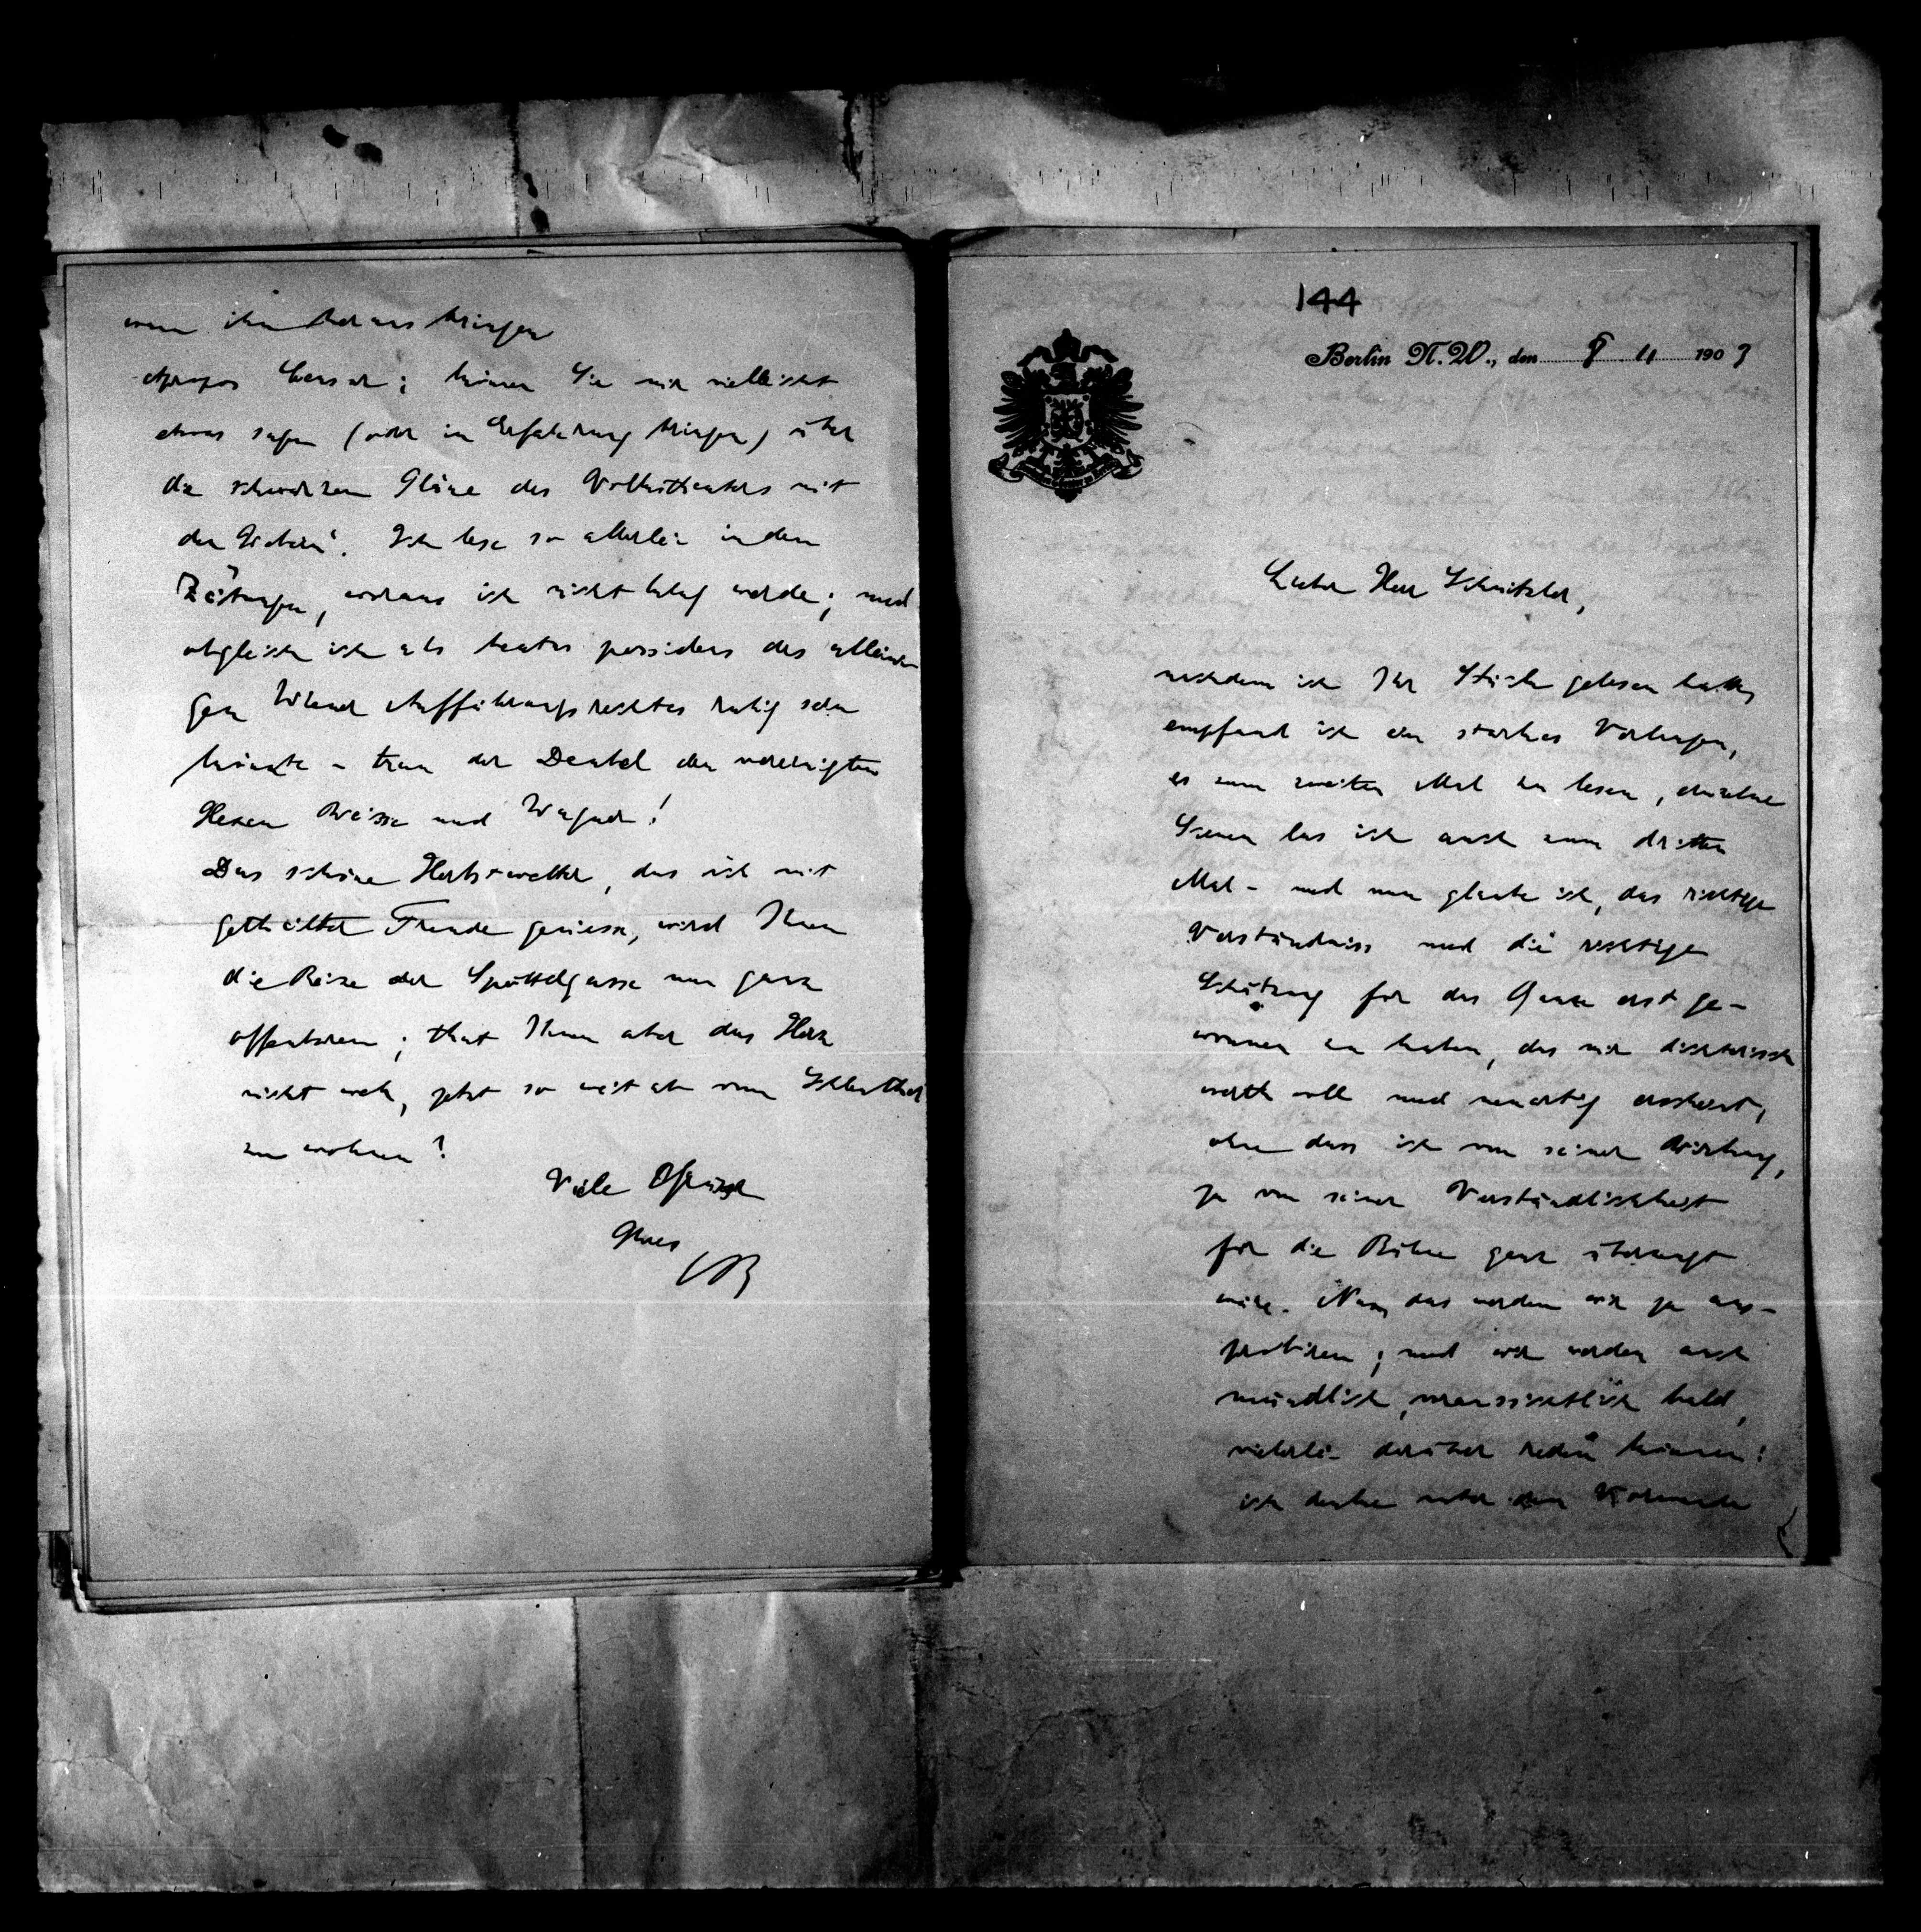 wenn ihn Bahrs bringen
Apropos Censur; können Sie mir vielleicht
etwas sagen (oder in Erfahrung bringen) über
die schwarzen Pläne des Volkstheaters mit
der Ich lese so allerlei in den
Zeitungen, woraus ich nicht klug werde; und
obgleich ich als beatus possidens des alleini-
gen Wiener Aufführungsrechtes ruhig sein
könnte – trau der Deubel den vereinigten
Herren Weisse und Wagner!
Das schöne Herbstwetter, das ich mit
getheilter Freude geniesse, wird Ihnen
die Reize der Spöttelgasse nun ganz
offenbaren; thut Ihnen aber das Herz
nicht weh, jetzt so weit ab vom
zu wohnen?
Viele Grüsse
Ihres
OB
144
Berlin N.W., den 8 11 1903
Lieber Herr Schnitzler,
nachdem ich Ihr Stück gelesen hatte,
empfand ich ein starkes Verlangen,
es zum zweiten Mal zu lesen, einzelne
Scenen las ich auch zum dritten
Mal – und nun glaube ich, das richtige
Verständniss und die richtige
Schätzung für das Ganze erst ge-
wonnen zu haben, das mir dichterisch
werthvoll und neuartig erscheint,
ohne dass ich von seiner Wirkung,
ja von seiner Verständlichkeit
für die Bühne ganz überzeugt
wäre. Nun, das werden wir ja aus-
probiren; und wir werden auch
mündlich, voraussichtlich bald,
vielerlei darüber reden können:
ich denke unter dem Vorwande